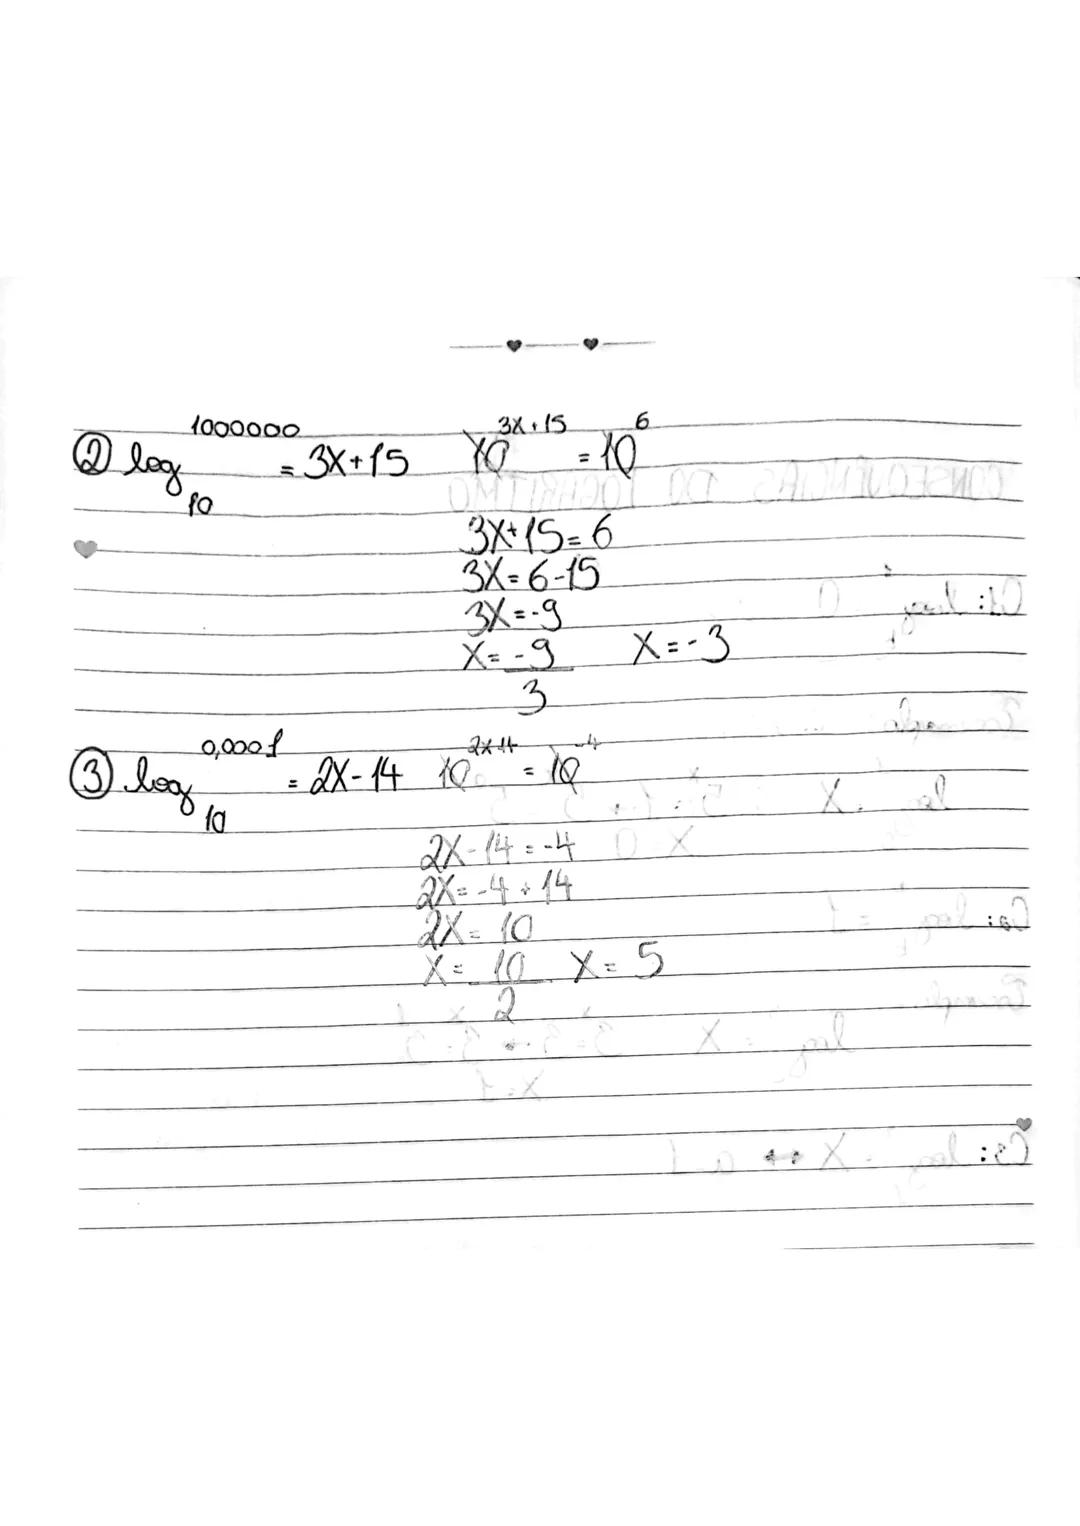 ② log 1000000 10 = 3X+15 10^3X+15 = 10^6
3X+15=6
3X=6-15
3X=-9
X=-9/3 X=-3
③ log 0,0001 10 = 2X-14 10^2X-14 = 10^-4
2X-14=-4
2X=-4+14
2X=10
X=10/2 X=5